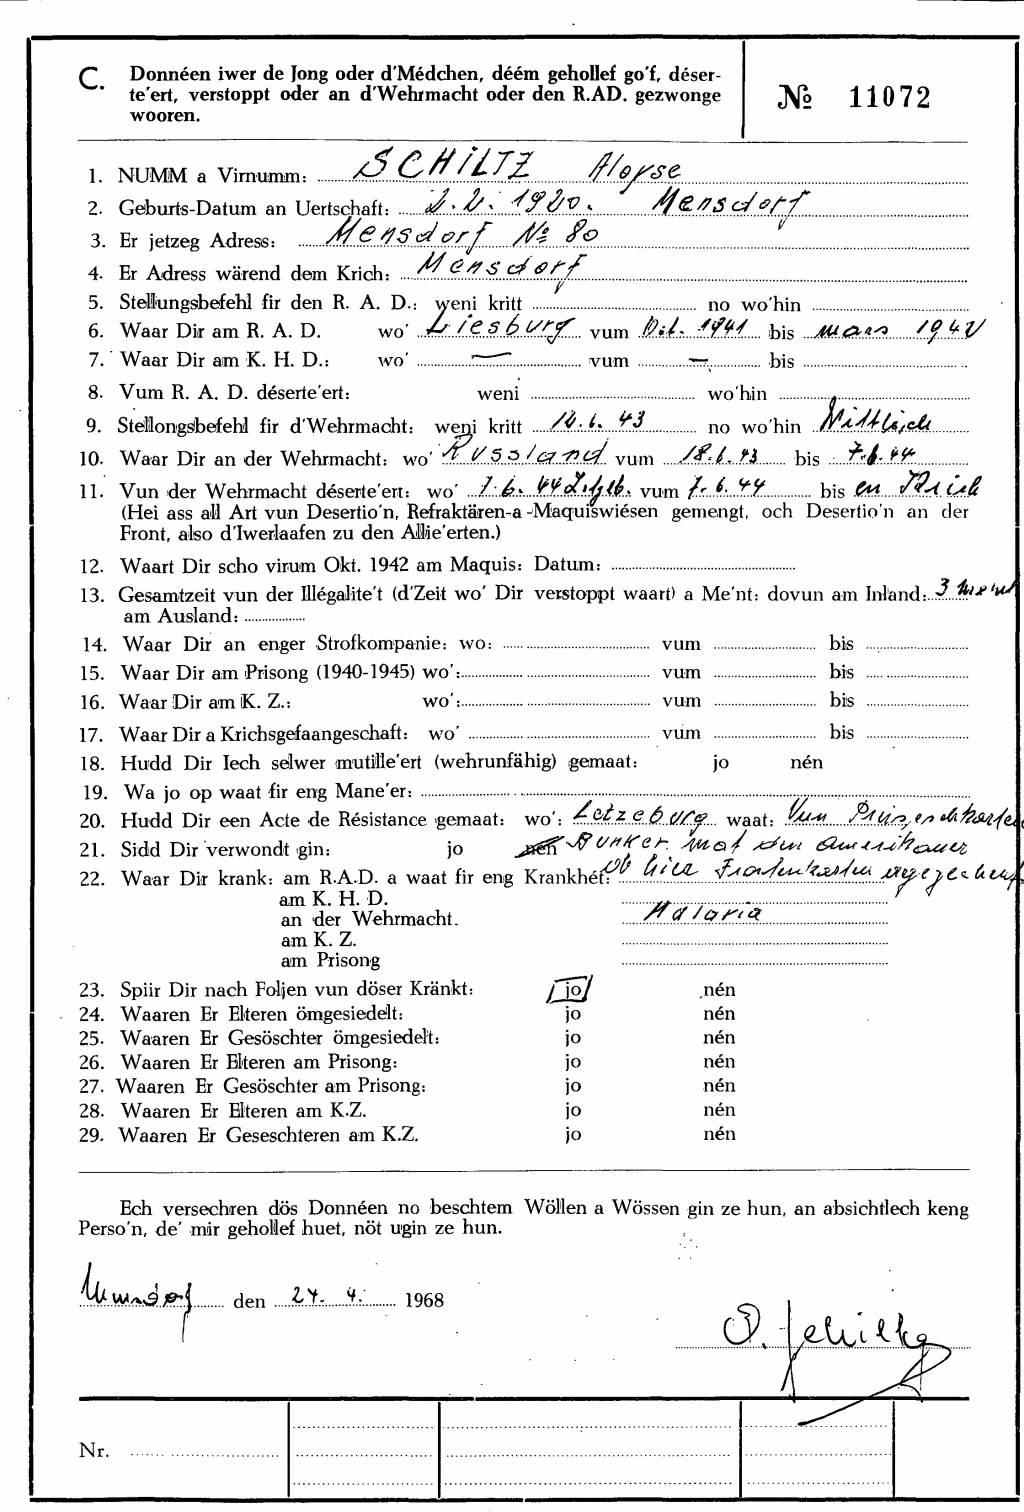 C. Donnéen iwer de Jong oder d'Médchen, déém gehollef go'f, déser-
te'ert, verstoppt oder an d'Wehrmacht oder den R.AD. gezwonge
wooren.
№ 11072
1. NUMM a Virnumm: SCHILTZ Aloyse
2. Geburts-Datum an Uertschaft: 2.2.1920. Mensdorf
3. Er jetzeg Adress: Mensdorf № 80
4. Er Adress wärend dem Krich: Mensdorf
5. Stellungsbefehl fir den R. A. D.: weni kritt no wo'hin
6. Waar Dir am R. A. D. wo' Liesburg vum Okt. 1941 bis mars 1942
7. Waar Dir am K. H. D.: wo' — vum — bis
8. Vum R. A. D. déserte'ert: weni wo'hin
9. Stellongsbefehl fir d'Wehrmacht: weni kritt 6. 43 no wo'hin Wittlich
10. Waar Dir an der Wehrmacht: wo' Russland vum 18.6.43 bis 7.6.44
11. Vun der Wehrmacht déserte'ert: wo' 7.6.44 vum 7.6.44 bis en
(Hei ass all Art vun Desertio'n, Refraktären-a -Maquiswiésen gemengt, och Desertio'n an der
Front, also d'Iwerlaafen zu den Allie'erten.)
12. Waart Dir scho virum Okt. 1942 am Maquis: Datum:
13. Gesamtzeit vun der Illégalite't (d'Zeit wo' Dir verstoppt waart) a Me'nt: dovun am Inland: 3
am Ausland:
14. Waar Dir an enger Strofkompanie: wo: vum bis
15. Waar Dir am Prisong (1940-1945) wo': vum bis
16. Waar Dir am K. Z.: wo': vum bis
17. Waar Dir a Krichsgefaangeschaft: wo' vum bis
18. Hudd Dir Iech selwer mutille'ert (wehrunfähig) gemaat: jo nén
19. Wa jo op waat fir eng Mane'er:
20. Hudd Dir een Acte de Résistance gemaat: wo': Letzeburg waat: Vun
21. Sidd Dir verwondt gin: jo nén Bunker. mat den amerikaner
22. Waar Dir krank: am R.A.D. a waat fir eng Krankhét: ob hier
am K. H. D.
an der Wehrmacht. Malaria
am K. Z.
am Prisong
23. Spiir Dir nach Foljen vun döser Kränkt: jo nén
24. Waaren Er Elteren ömgesiedelt: jo nén
25. Waaren Er Gesöschter ömgesiedelt: jo nén
26. Waaren Er Elteren am Prisong: jo nén
27. Waaren Er Gesöschter am Prisong: jo nén
28. Waaren Er Elteren am K.Z. jo nén
29. Waaren Er Geseschteren am K.Z. jo nén
Ech versechren dös Donnéen no beschtem Wöllen a Wössen gin ze hun, an absichtlech keng
Perso'n, de' mir gehollef huet, nöt ugin ze hun.
Mensdorf den 24. 4. 1968
Schiltz
Nr.